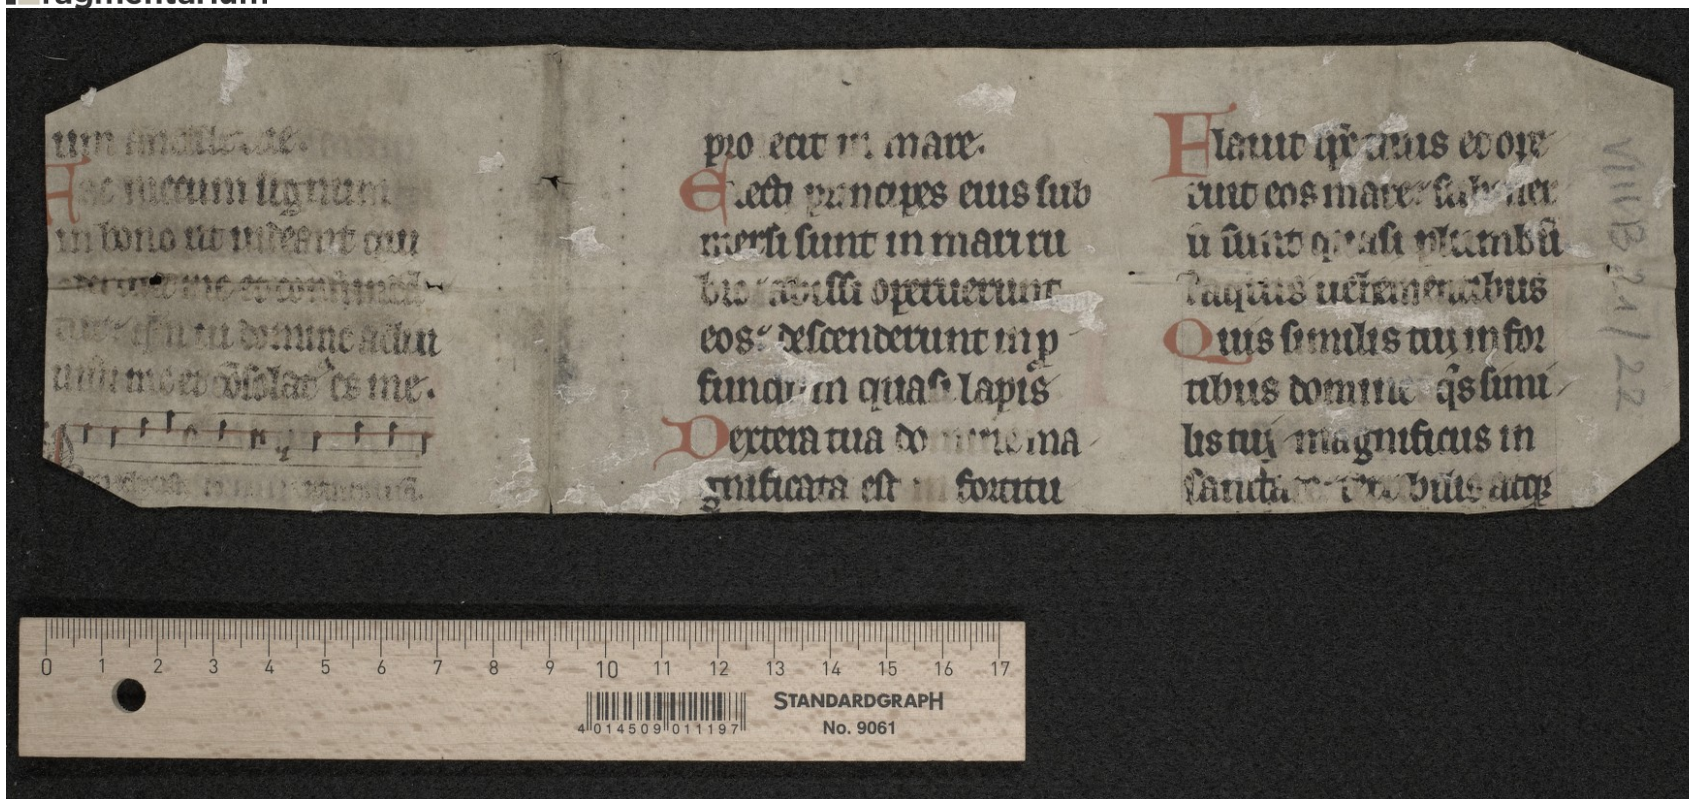 um
Fac mecum signum
in bono ut uideant qui
tu domine adiu
uisti me et cōsolatꝰ es me.
pro ecit in mare.
Electi principes eius sub
mersi sunt in mari ru
bro abissi operuerunt
eos descenderunt in ꝓ
fundum quasi lapis
Dextera tua domine ma
gnificata est in fortitu
Flauit sp̄c tuus et ope
ruit eos mare submer
si sunt quasi plumbū
in aquis uehementibus
Quis similis tui in for
tibus domine q̄s simi
lis tui magnificus in
sanctitate terribilis atqꝫ
VIII B 21/22
0 1 2 3 4 5 6 7 8 9 10 11 12 13 14 15 16 17
STANDARDGRAPH
No. 9061
4 014509 011197